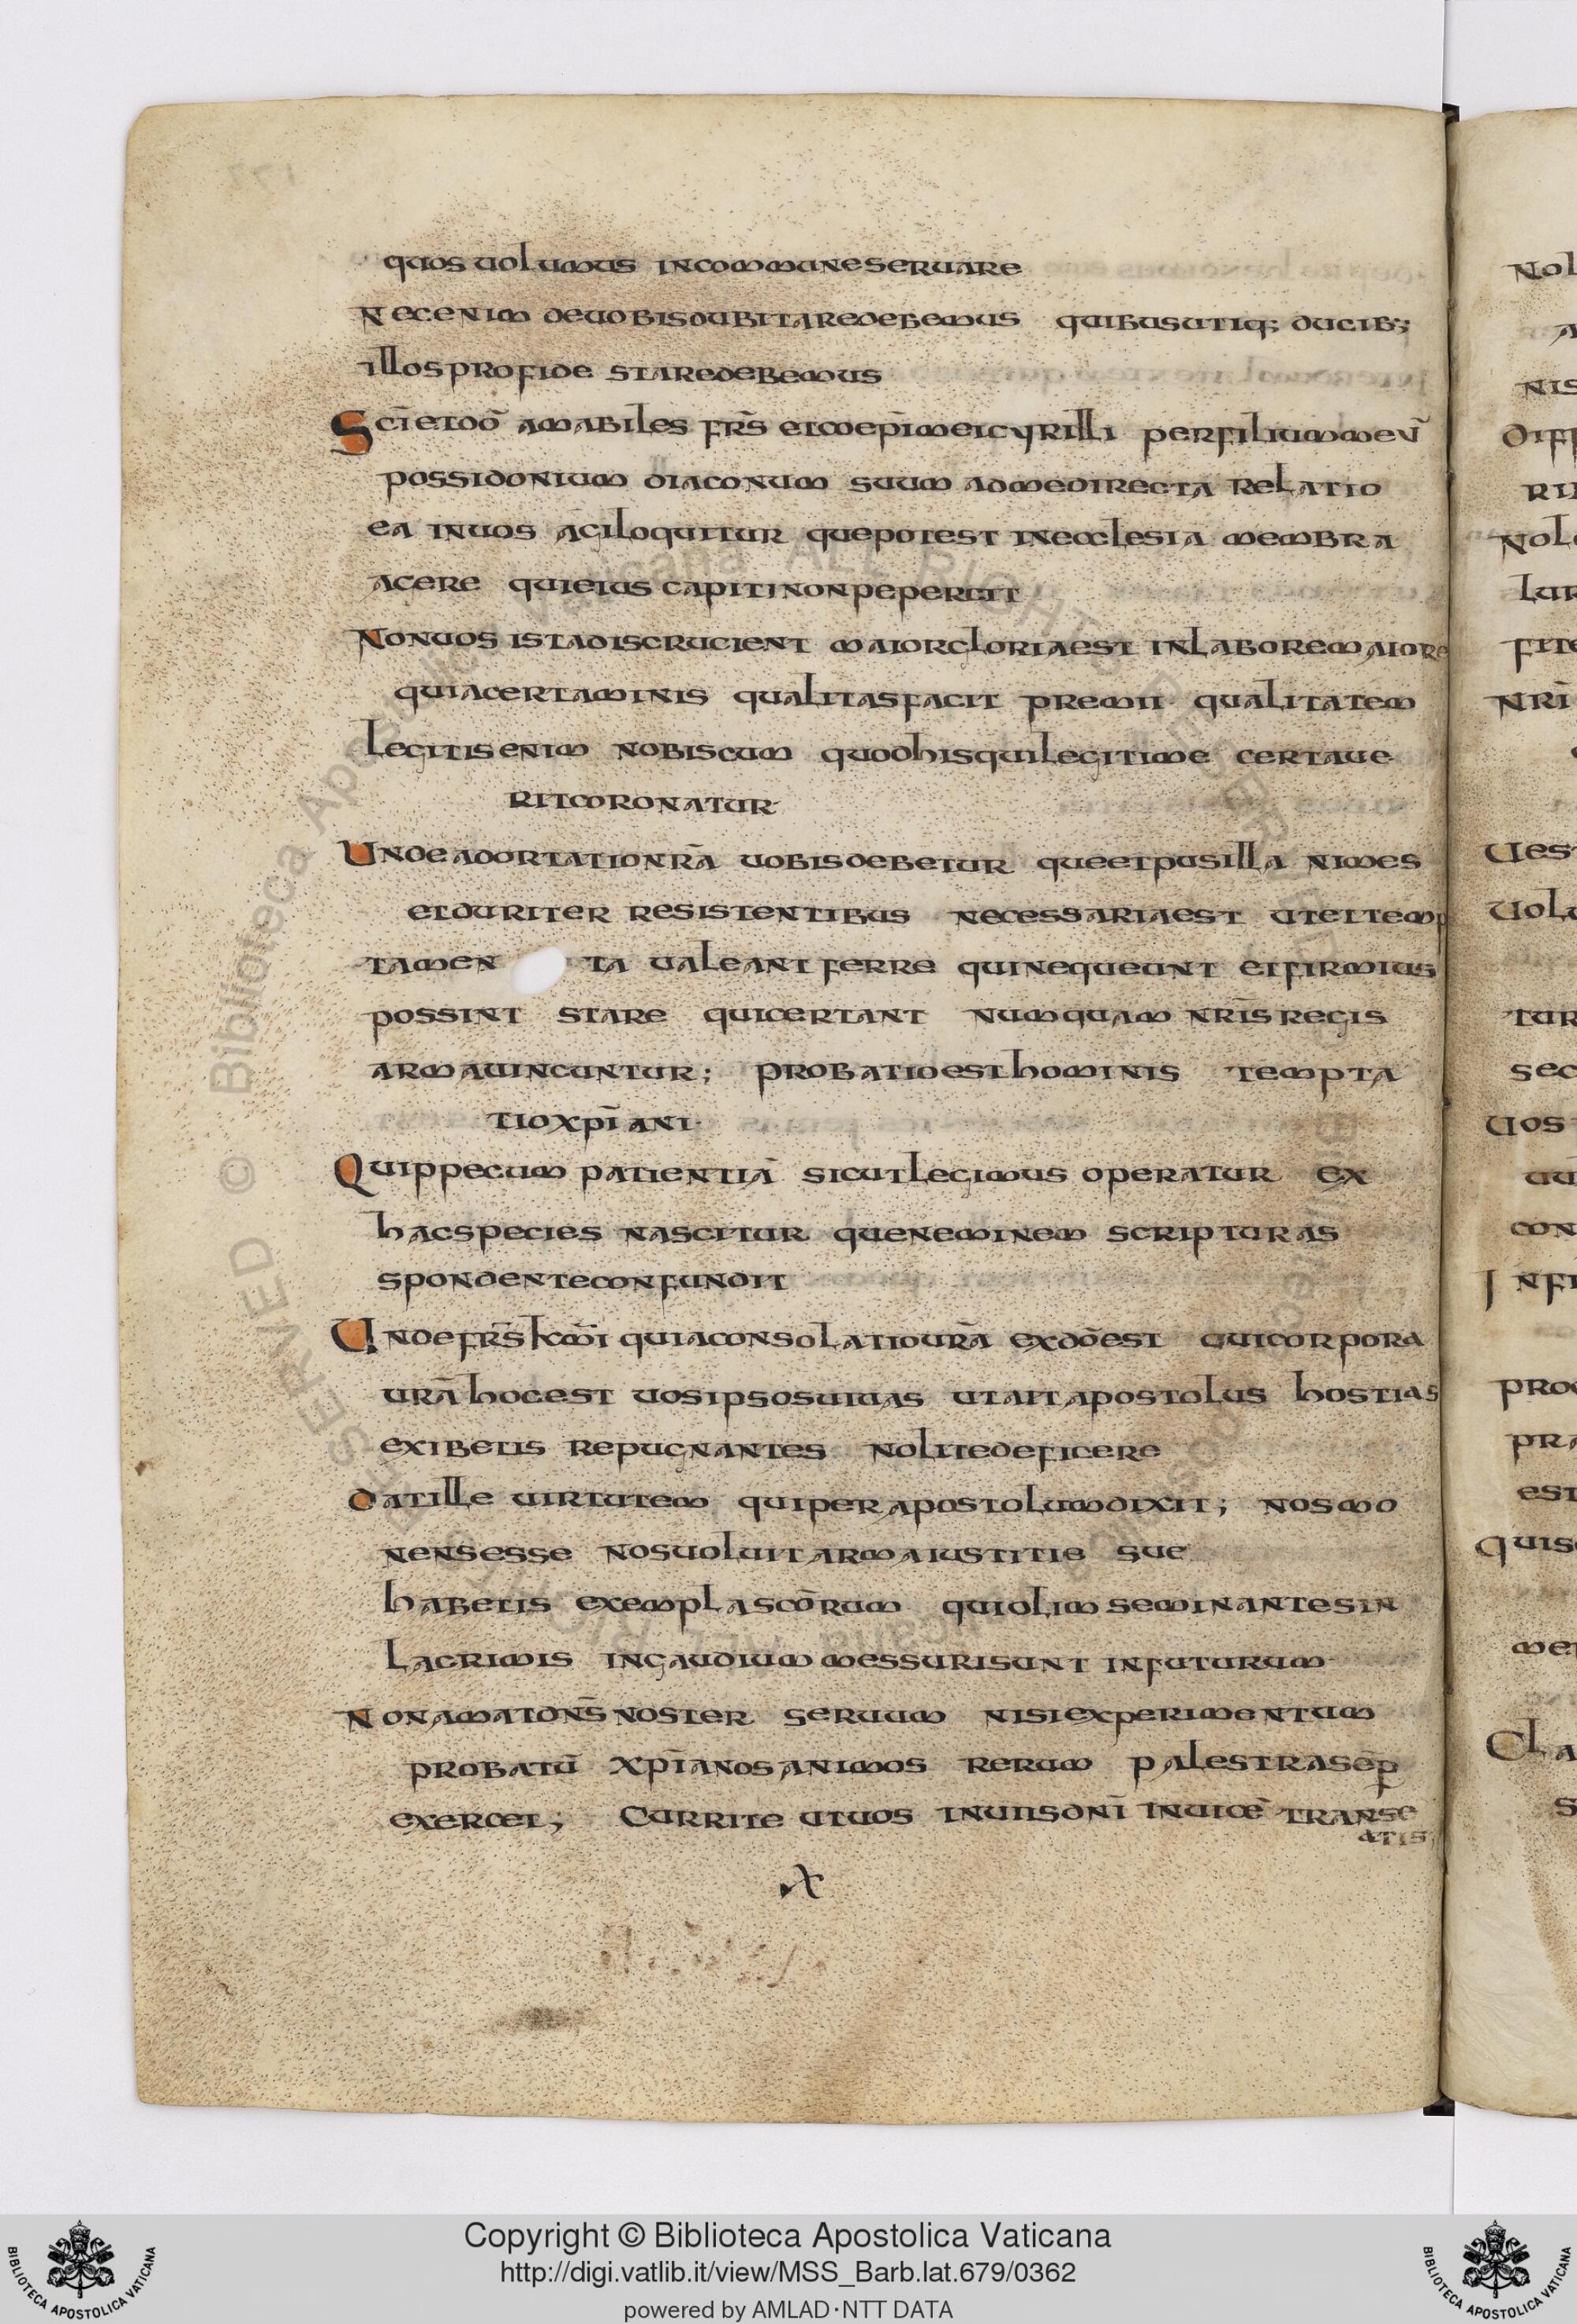 quos uolumus incommune seruare
Nec enim de uobis dubitare debemus quibus utiq; ducib;
illos pro fide stare debemus
Sci̅ et do̅ amabiles frs̅ et coepi̅ mei cyrilli per filium meu̅
possidonium diaconum suum ad me directa relatio
ea in uos agi loquitur que potest in ecclesia membra
agere qui eius capiti non pepercit
Non uos ista discrucient maior gloria est in labore maiore
quia certaminis qualitas facit premii qualitatem
legitis enim nobiscum quod his qui legitime certaue
rit coronatur
Unde adortatio nra̅ uobis debetur que et pusilla nimes
et duriter resistentibus necessaria est ut et temp
tamen ta ualeant ferre qui nequeunt et firmius
possint stare qui certant numquam nri̅s regis
arma uincuntur; probatio est hominis tempta
tio xpi̅ani
Quippe cum patientia̅ sicut legimus operatur ex
hac species nascitur que neminem scripturas
spondente confundit
Unde frs̅ kmi̅ quia consolatio ura̅ ex do̅ est qui corpora
ura̅ hoc est uos ipsos uiuas ut ait apostolus hostias
exibetis repugnantes nolite deficere
dat ille uirtutem qui per apostolum dixit; nos mo
nens esse nos uoluit arma iustitie sue
habetis exempla sco̅rum qui olim seminantes in
lacrimis in gaudium messuri sunt in futurum
Non amat dns̅ noster seruum nisi experimentum
probatu̅ xpi̅anos animos rerum palestra sep̅
exercet; Currite ut uos in uiis dni̅ inuice̅ transe
atis
X
Nol
A
nis
Diff
ri
Nol
lur
fite
nri̅
Uest
Uolu
tur
sec
Uos
con
Inf
pro
pra
est
quis
me
Cla
s
© Biblioteca Apostolica Vaticana ALL RIGHTS RESERVED
Copyright © Biblioteca Apostolica Vaticana
http://digi.vatlib.it/view/MSS_Barb.lat.679/0362
powered by AMLAD·NTT DATA
BIBLIOTECA APOSTOLICA VATICANA
BIBLIOTECA APOSTOLICA VATICANA